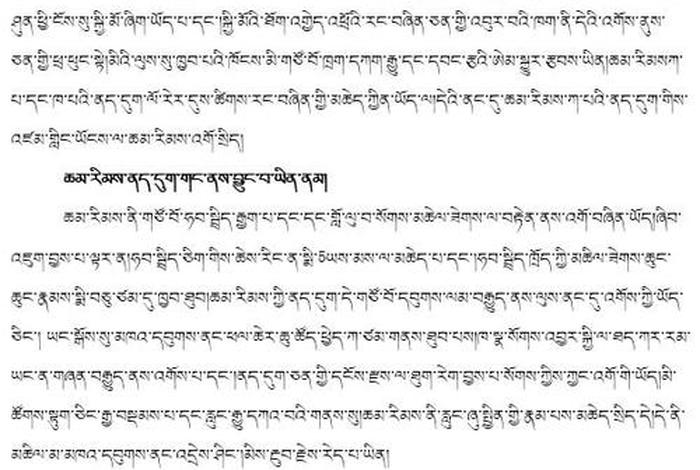 ཤུན་ཕྱི་ངོས་སུ་སྐྱི་མོ་ཞིག་ཡོད་པ་དང་།སྐྱི་མོའི་ཐོག་འགྱེད་འཕྲོའི་རང་བཞིན་ཅན་གྱི་འབུར་བའི་ཁག་ནི་དེའི་འགོས་ནུས་
ཅན་གྱི་ཕྲ་ཕུང་སྟེ།མིའི་ལུས་སུ་ཁྱབ་པའི་ཁོངས་མི་གཙོ་བོ་ཁྲག་དཀག་རྒྱུ་དང་དབང་རྩའི་ཨེམ་སྐྱུར་རྩབས་ཡིན།ཆམ་རིམསཀ་
པ་དང་ཁ་པའི་ནད་དུག་ལོ་རེར་དུས་ཚིགས་རང་བཞིན་གྱི་མཆེད་ཀྱིན་ཡོད་ལ།དེའི་ནང་དུ་ཆམ་རིམས་ཀ་པའི་ནད་དུག་གིས་
འཛམ་གླིང་ཡོངས་ལ་ཆམ་རིམས་འགོ་སྲིད།
ཆམ་རིམས་ནད་དུག་གང་ནས་བྱུང་བ་ཡིན་ནམ།
ཆམ་རིམས་ནི་གཙོ་བོ་ཧབ་སྦྲིད་རྒྱག་པ་དང་དང་གློ་ལུ་བ་སོགས་མཆིལ་ཟེགས་ལ་བརྟེན་ནས་འགོ་བཞིན་ཡོད།ཞིབ་
འཇུག་བྱས་པ་ལྟར་ན།ཧབ་སྦྲིད་ཅིག་གིས་ཆེས་རིང་ན་སྨི་5ཡས་མས་ལ་མཆེད་པ་དང་།ཧབ་སྦྲིད་ཁྲོད་ཀྱི་མཆིལ་ཟེགས་ཆུང་
ཆུང་རྣམས་སྨི་བཅུ་ཙམ་དུ་ཁྱབ་ཐུབ།ཆམ་རིམས་ཀྱི་ནད་དུག་དེ་གཙོ་བོ་དབུགས་ལམ་བརྒྱུད་ནས་ལུས་ནང་དུ་འགོས་ཀྱི་ཡོད་
ཅིང་། ཡང་སྒོས་སུ་མཁའ་དབུགས་ནང་ཕལ་ཆེར་ཆུ་ཚོད་ཕྱེད་ཀ་ཙམ་གནས་ཐུབ་པས།ཁ་སྣ་སོགས་འབྱར་སྐྱི་ལ་ཐད་ཀར་རམ་
ཡང་ན་གཞན་བརྒྱུད་ནས་འགོས་པ་དང་།ནད་དུག་ཅན་གྱི་དངོས་རྫས་ལ་ཐུག་རེག་བྱས་པ་སོགས་ཀྱིས་ཀྱང་འགོ་གི་ཡོད།མི་
ཚོགས་སྟུག་ཅིང་རྒྱ་བསྡམས་པ་དང་རླུང་རྒྱུ་དཀའ་བའི་གནས་སུ།ཆམ་རིམས་ནི་རླུང་ཞུ་སྤྲིན་གྱི་རྣམ་པས་མཆེད་སྲིད་དེ།དེ་ནི་
མཆིལ་མ་མཁའ་དབུགས་ནང་འདྲེས་ཤིང་།མིས་རྔུབ་རྗེས་རེད་པ་ཡིན།